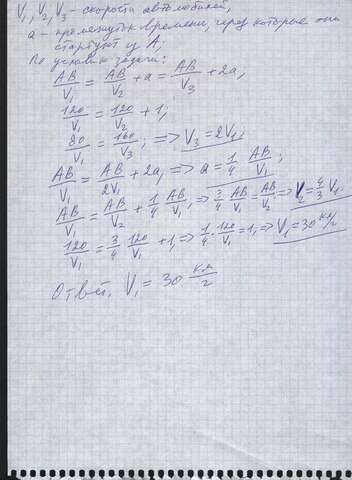 V₁, V₂, V₃ - скорости автомобилей,
a - промежуток времени, через которые они
стартуют из A,
По условию задачи:
AB/V₁ = AB/V₂ + a = AB/V₃ + 2a,
120/V₁ = 120/V₂ + 1,
80/V₁ = 160/V₃; => V₃ = 2V₁,
AB/V₁ = AB/2V₁ + 2a, => a = 1/4 AB/V₁,
AB/V₁ = AB/V₂ + 1/4 AB/V₁, => 3/4 AB/V₁ = AB/V₂, => V₂ = 4/3 V₁.
120/V₁ = 3/4 · 120/V₁ + 1, => 1/4 · 120/V₁ = 1, => V₁ = 30 км/г
Ответ. V₁ = 30 км/г